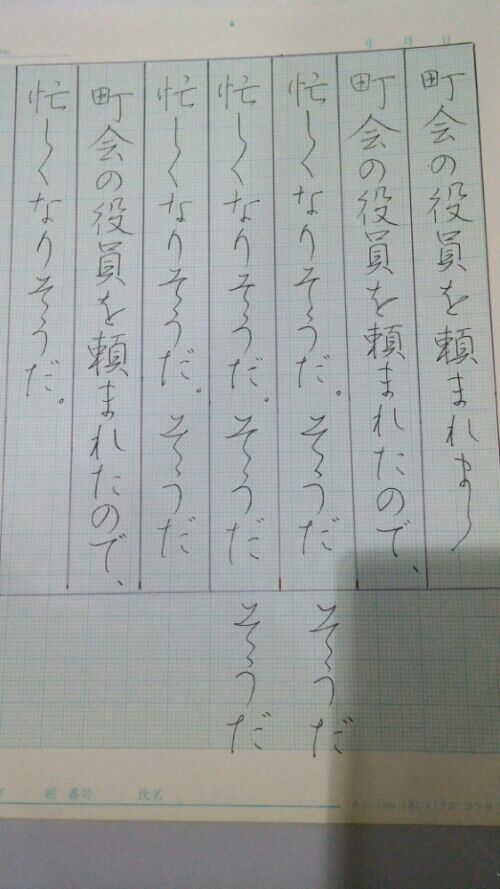 年 月 日
町会の役員を頼まれまし
町会の役員を頼まれたので、
忙しくなりそうだ。そうだ
そうだ
忙しくなりそうだ。そうだ
そうだ
忙しくなりそうだ。そうだ
町会の役員を頼まれたので、
忙しくなりそうだ。
年 組 番号 氏名